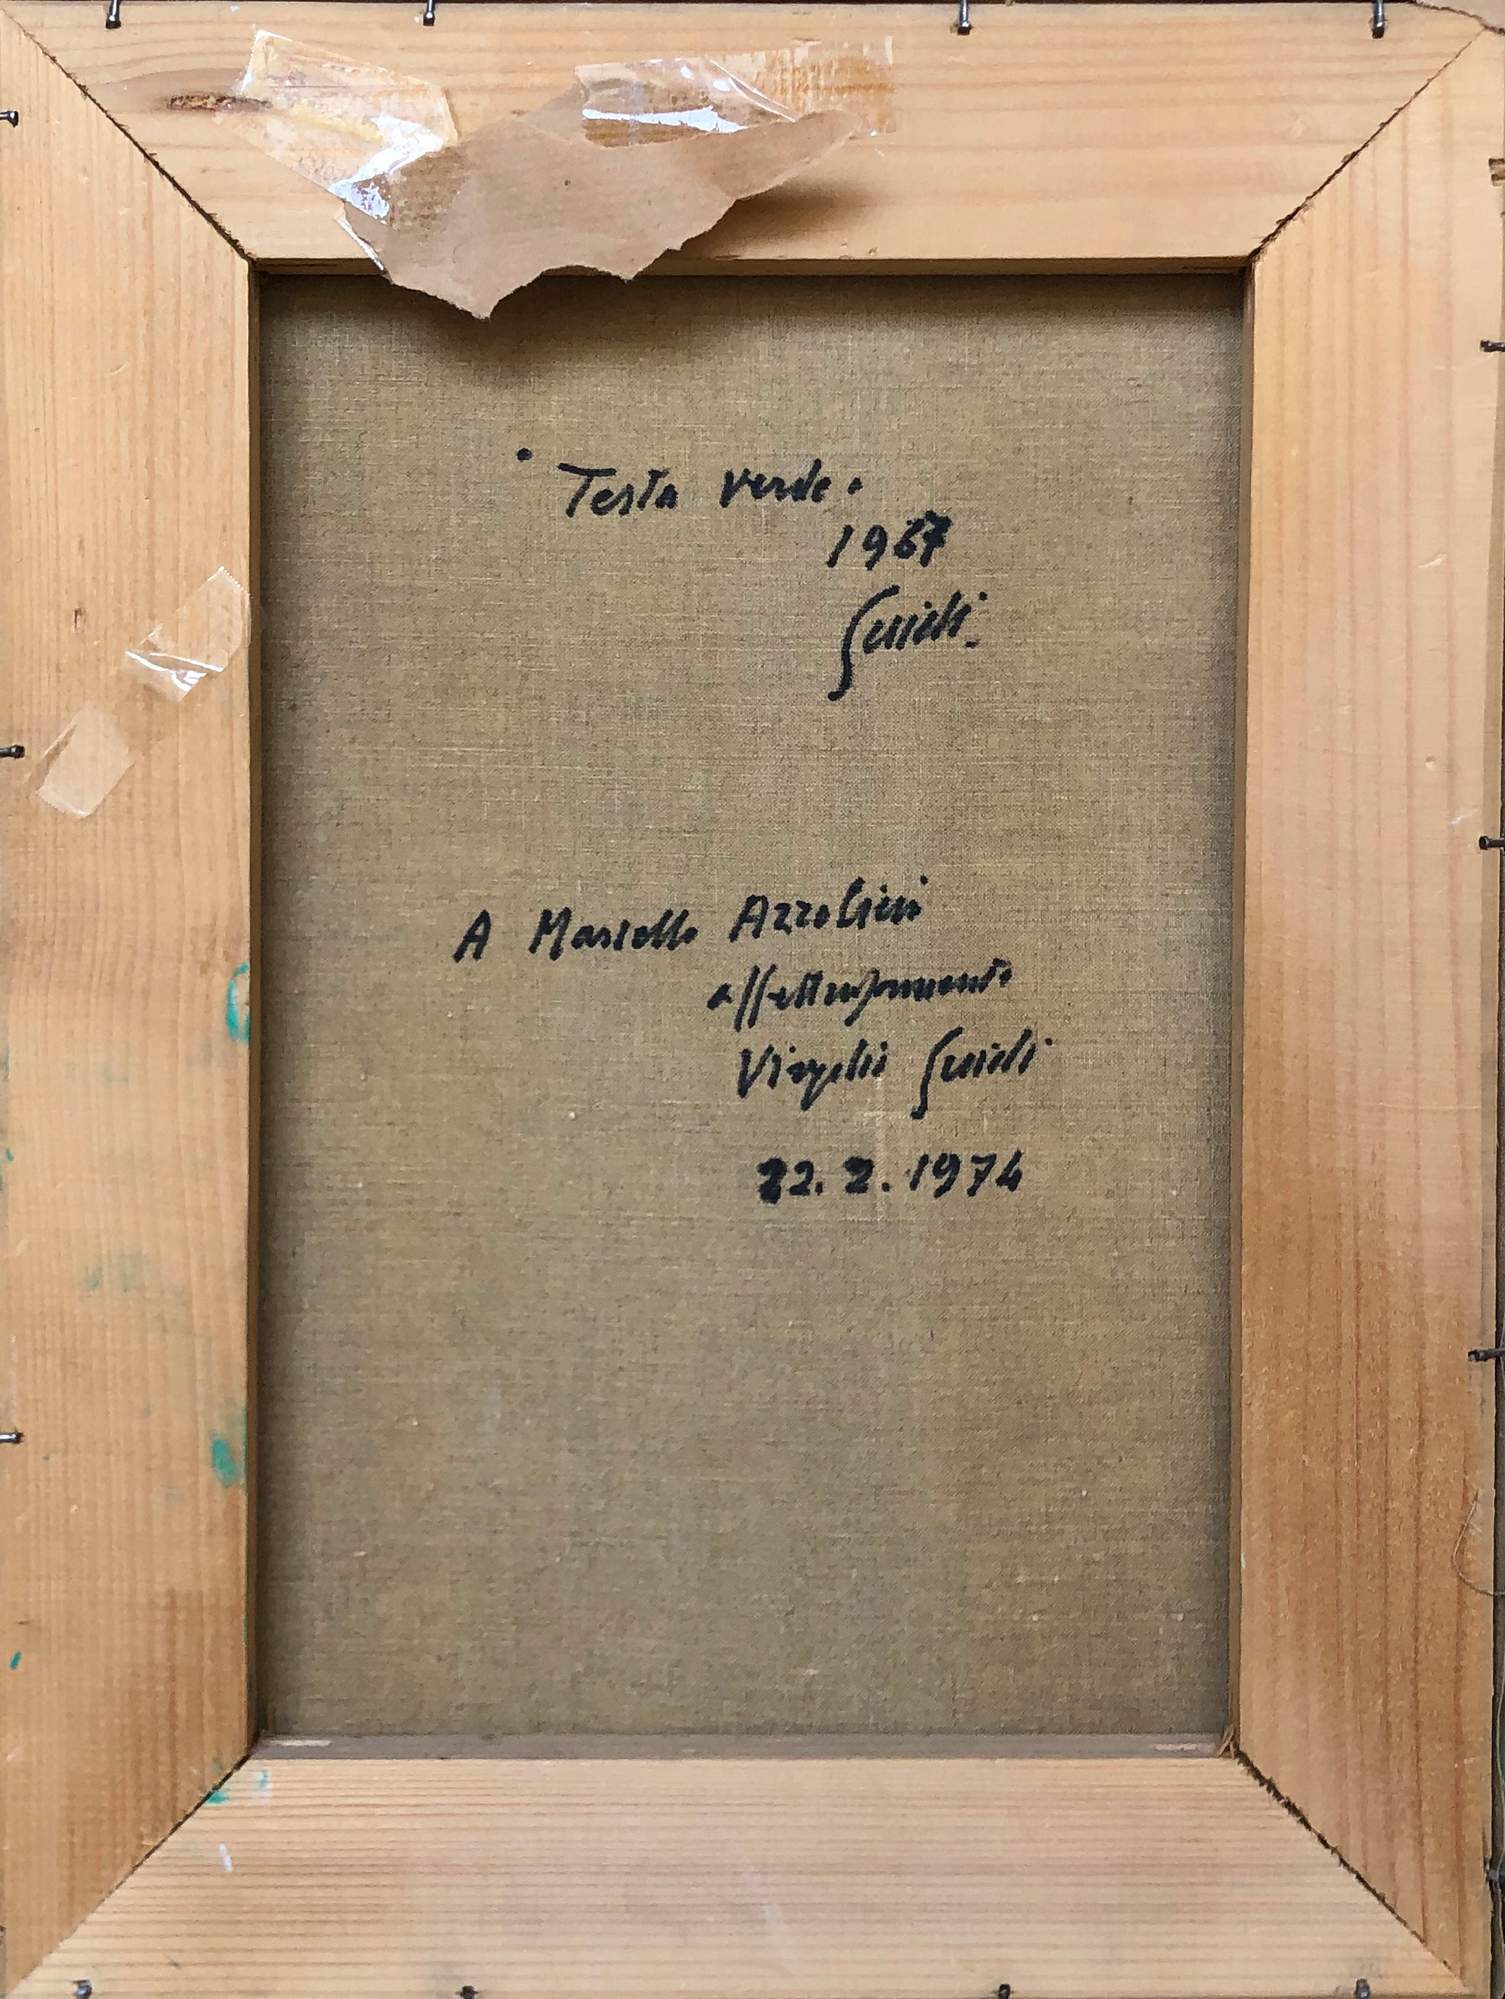 "Testa verde"
1967
Guidi.
A Marcello Azzolini
affettuosamente
Virgilio Guidi
22.2.1974